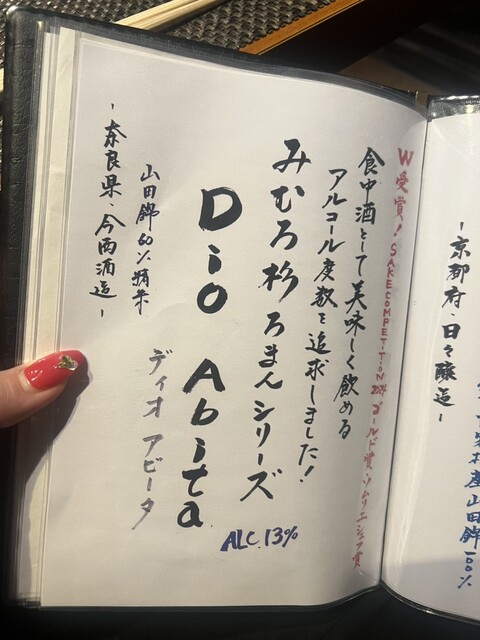 ~京都府・日々醸造~
山田錦100%
W受賞!SAKE COMPETITION 2024 ゴールド賞・ソムリエシェフ賞
食中酒として美味しく飲める
アルコール度数を追求しました!
みむろ杉 ろまんシリーズ
Dio Abita
ディオ アビータ
ALC.13%
山田錦60%精米
~奈良県・今西酒造~